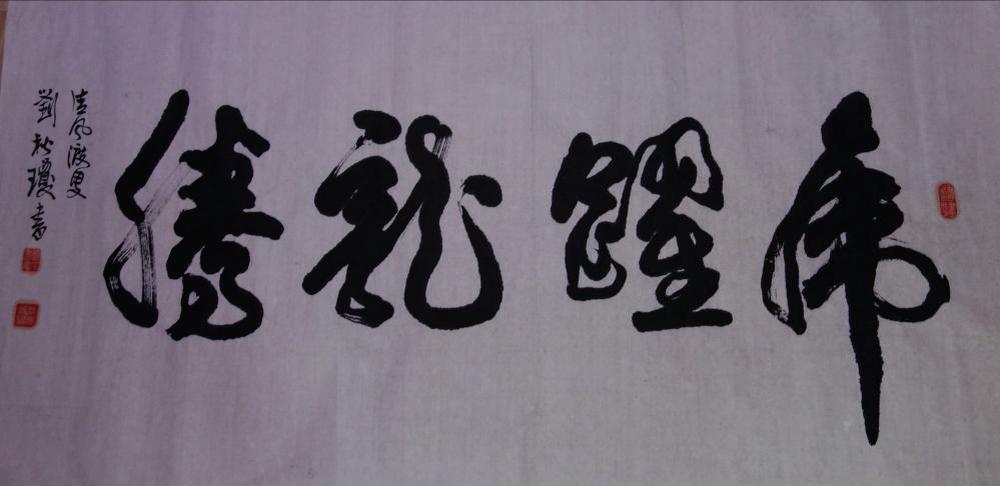 虎躍龍騰
清風渡叟
劉秋瓊書